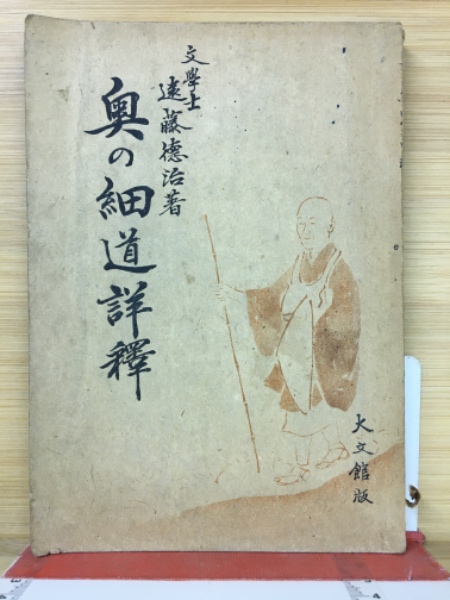 文學士
遠藤德治著
奥の細道詳釋
大文館版